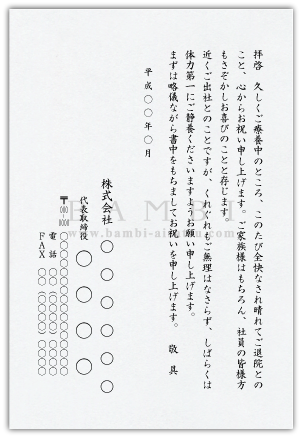 拝啓　久しくご療養中のところ、このたび全快なされ晴れてご退院との
こと、心からお祝い申し上げます。ご家族様はもちろん、社員の皆様方
もさぞかしお喜びのことと存じます。
近くご出社とのことですが、くれぐれもご無理はなさらず、しばらくは
体力第一にご静養くださいますようお願い申し上げます。
まずは略儀ながら書中をもちましてお祝いを申し上げます。　敬具
平成〇〇年〇月
株式会社〇〇〇〇〇
代表取締役〇〇〇〇〇
〒000-0000
電話
FAX
BAMBI